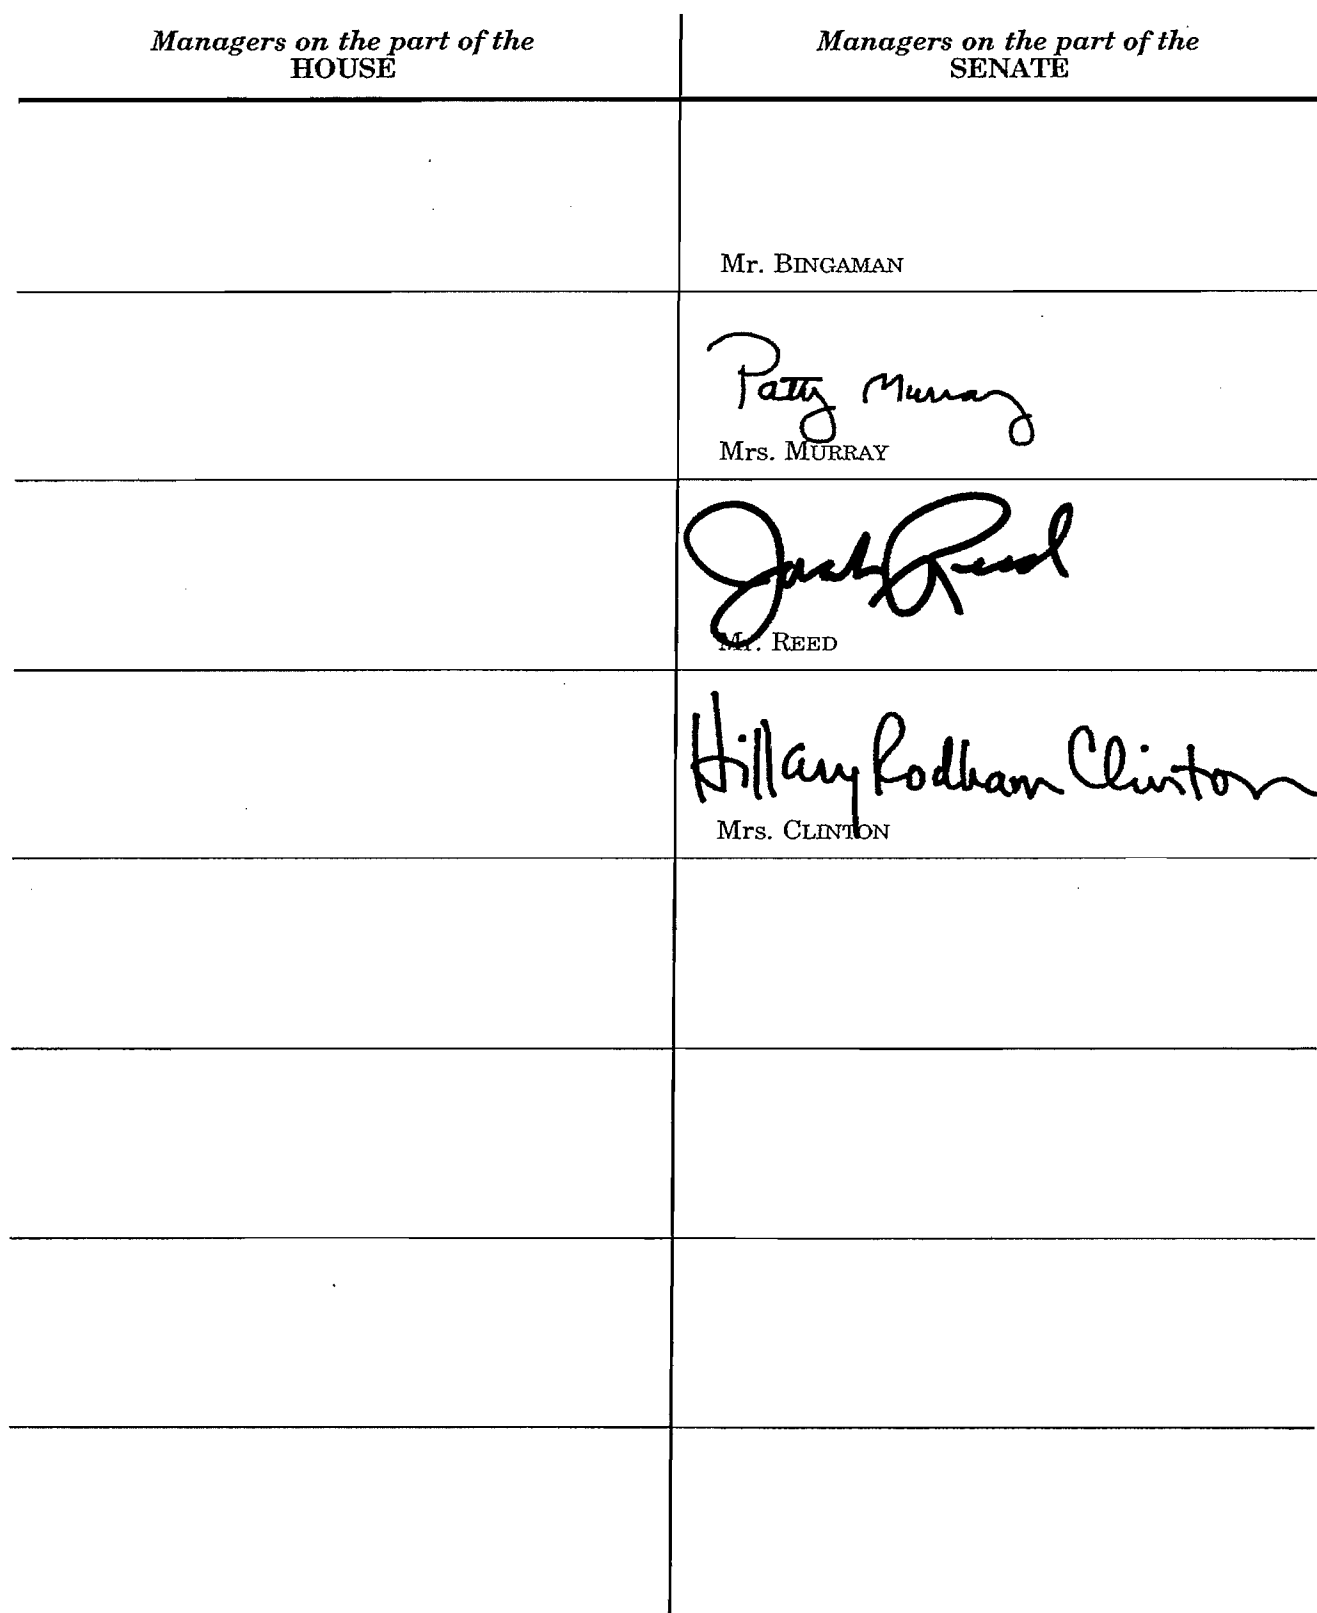 Managers on the part of the
HOUSE
Managers on the part of the
SENATE
Mr. BINGAMAN
Patty Murray
Mrs. MURRAY
Jack Reed
Mr. REED
Hillary Rodham Clinton
Mrs. CLINTON